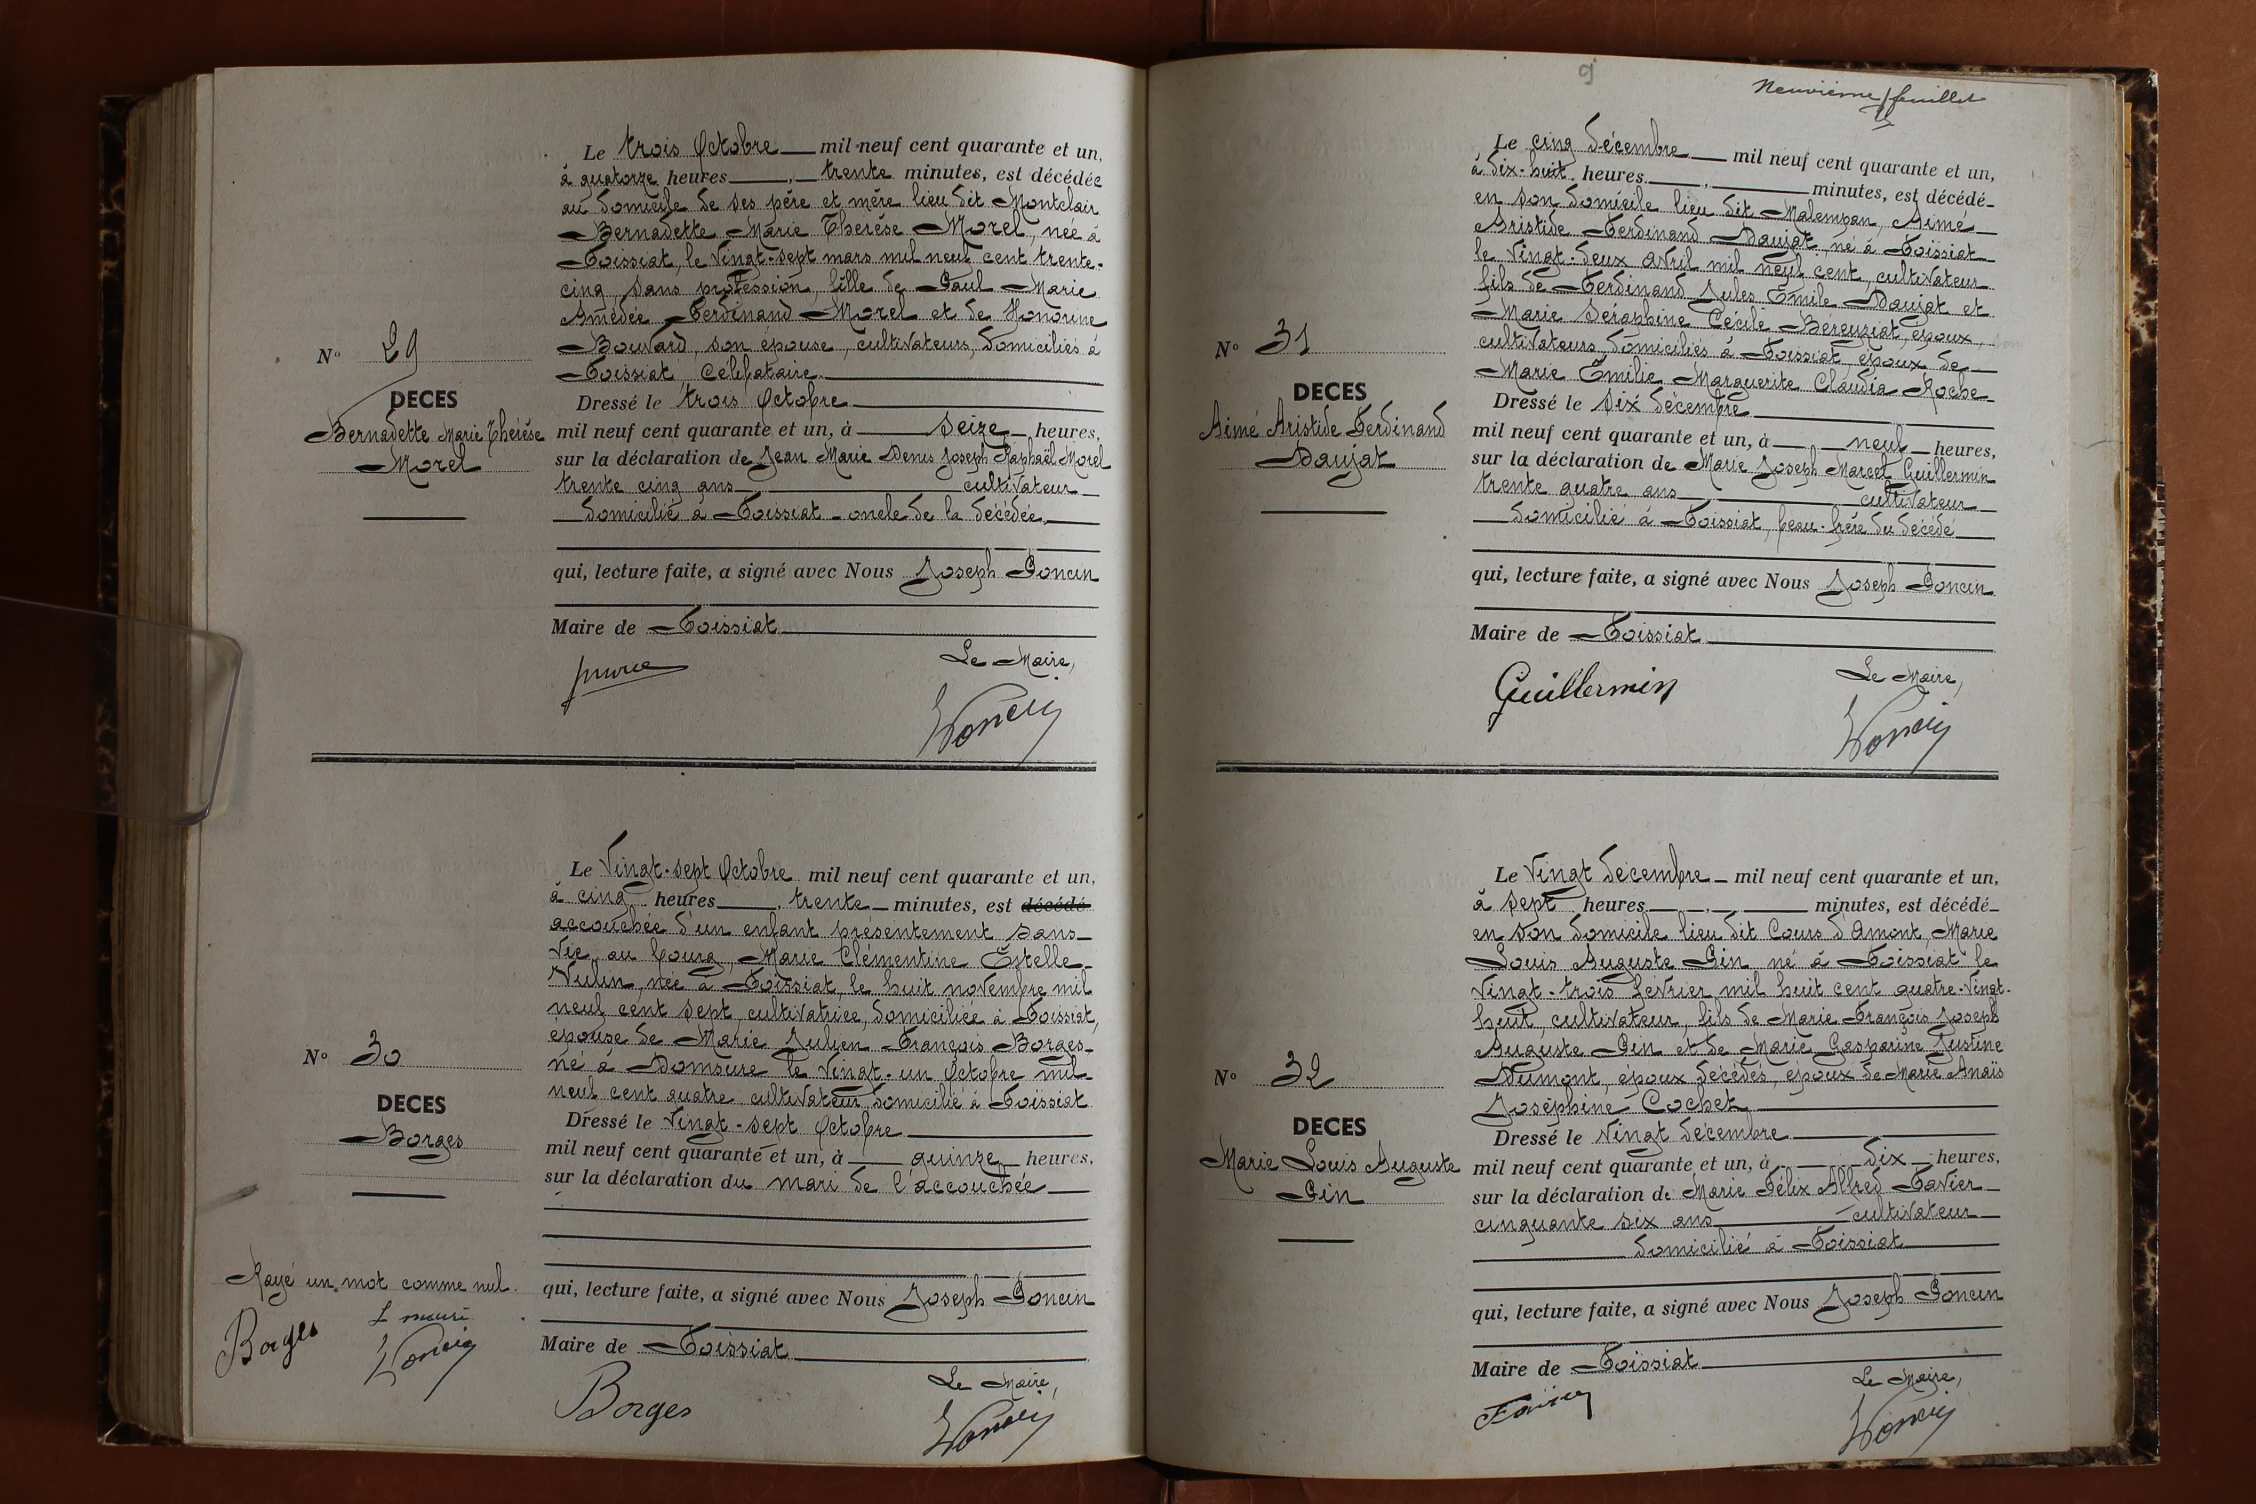 Le trois Octobre mil neuf cent quarante et un,
à quatorze heures, trente minutes, est décédée
au domicile de ses père et mère lieu dit Montclair
Bernadette Marie Thérèse Morel, née à
Foissiat, le Vingt-sept mars mil neuf cent trente-
cinq, sans profession, fille de Paul Marie
Amédée Ferdinand Morel et de Honorine
Bouvard, son épouse, cultivateurs, domiciliés à
Foissiat, Célibataire.
Dressé le trois Octobre
mil neuf cent quarante et un, à seize heures,
sur la déclaration de Jean Marie Denis Joseph Raphaël Morel
trente cinq ans cultivateur
domicilié à Foissiat - oncle de la décédée,
qui, lecture faite, a signé avec Nous Joseph Poncin
Maire de Foissiat
Le Maire,
Poncin
N° 29
DECES
Bernadette Marie Thérèse
Morel
Le Vingt-sept Octobre mil neuf cent quarante et un,
à cinq heures, trente minutes, est décédé
accouchée d'un enfant présentement sans
Vie, au bourg, Marie Clémentine Estelle
Vulin, née à Foissiat, le huit novembre mil
neuf cent sept, cultivatrice, domiciliée à Foissiat,
épouse de Marie Julien François Borges
né à Domsure le Vingt-un Octobre mil
neuf cent quatre, cultivateur domicilié à Foissiat
Dressé le Vingt-sept Octobre
mil neuf cent quarante et un, à quinze heures,
sur la déclaration du mari de l'accouchée
qui, lecture faite, a signé avec Nous Joseph Poncin
Maire de Foissiat
Le Maire,
Borges
Poncin
N° 30
DECES
Borges
Rayé un mot comme nul.
Borges
Poncin
9
Neuvième feuillet
Le cinq décembre mil neuf cent quarante et un,
à dix-huit heures, minutes, est décédé
en son domicile lieu dit Malempan, Aimé
Aristide Ferdinand Daujat, né à Foissiat
le Vingt-deux avril mil neuf cent, cultivateur
fils de Ferdinand Jules Emile Daujat et
Marie Séraphine Cécile Béreyziat, époux,
cultivateurs, domiciliés à Foissiat, époux de
Marie Emilie Marguerite Claudia Roche
Dressé le six décembre
mil neuf cent quarante et un, à neuf heures,
sur la déclaration de Marie Joseph Marcel Guillermin
trente quatre ans cultivateur
domicilié à Foissiat, beau-frère du décédé
qui, lecture faite, a signé avec Nous Joseph Poncin
Maire de Foissiat
Le Maire,
Guillermin
Poncin
N° 31
DECES
Aimé Aristide Ferdinand
Daujat
Le Vingt décembre mil neuf cent quarante et un,
à sept heures, minutes, est décédé
en son domicile lieu dit Cours d'Amont, Marie
Louis Auguste Pin né à Foissiat le
Vingt-trois février mil huit cent quatre-Vingt-
huit, cultivateur, fils de Marie François Joseph
Auguste Pin et de Marie Gasparine Justine
Dumont, époux décédés, époux de Marie Anaïs
Joséphine Cochet
Dressé le Vingt décembre
mil neuf cent quarante et un, à dix heures,
sur la déclaration de Marie Félix Alfred Favier
cinquante six ans cultivateur
domicilié à Foissiat
qui, lecture faite, a signé avec Nous Joseph Poncin
Maire de Foissiat
Le Maire,
Favier
Poncin
N° 32
DECES
Marie Louis Auguste
Pin